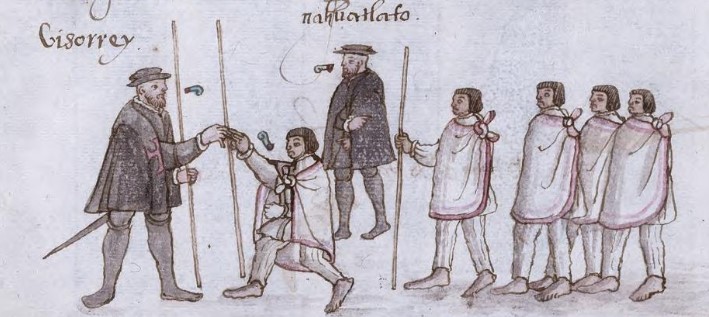 Visorrey.
nahuatlato.